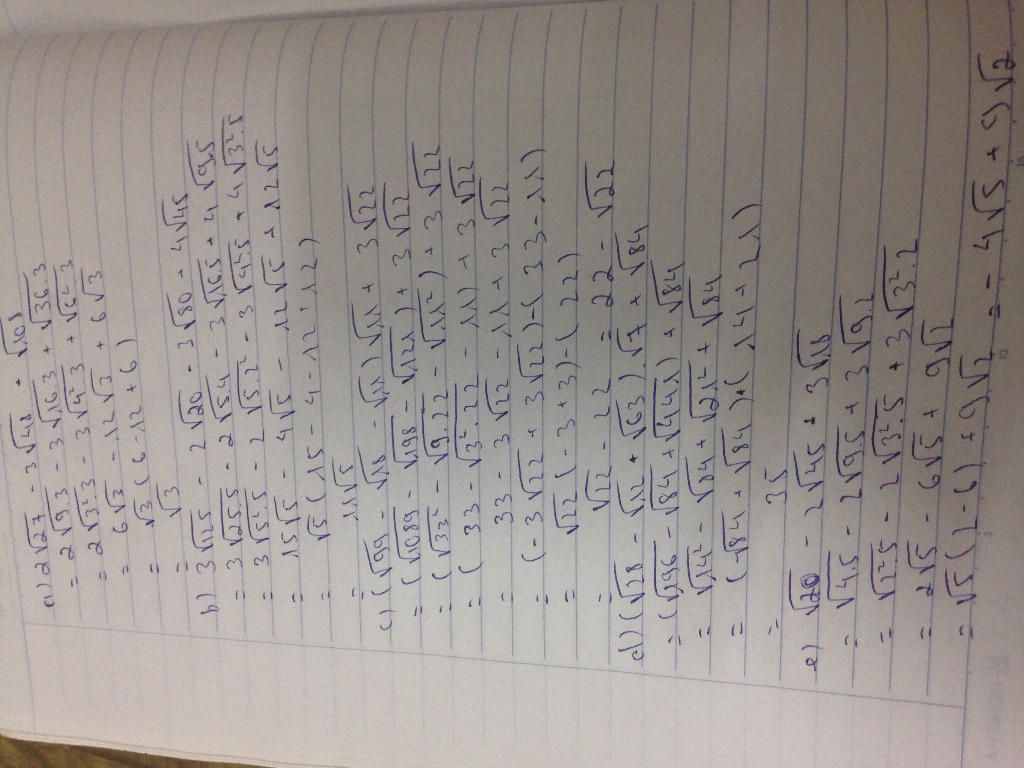 a) 2√27 - 3√48 + √108
= 2√9.3 - 3√16.3 + √36.3
= 2√3².3 - 3√4².3 + √6².3
= 6√3 - 12√3 + 6√3
= √3 (6 - 12 + 6)
= √3
b) 3√125 - 2√20 - 3√80 + 4√45
= 3√25.5 - 2√5.4 - 3√16.5 + 4√9.5
= 3√5².5 - 2√5.2² - 3√4².5 + 4√3².5
= 15√5 - 4√5 - 12√5 + 12√5
= √5 (15 - 4 - 12 + 12)
= 11√5
c) (√99 - √18 - √11) √11 + 3√22
= (√1089 - √198 - √121) + 3√22
= (√33² - √9.22 - √11²) + 3√22
= (33 - √3².22 - 11) + 3√22
= 33 - 3√22 - 11 + 3√22
= (-3√22 + 3√22) - (33 - 11)
= √22 (-3 + 3) - (22)
= √22 - 22 = 22 - √22
d) (√28 - √12 + √63) . √7 + √84
= (√196 - √84 + √441) + √84
= √14² - √84 + √21² + √84
= (-√84 + √84) + (14 + 21)
= 35
e) √20 - 2√45 + 3√18
= √4.5 - 2√9.5 + 3√9.2
= √2².5 - 2√3².5 + 3√3².2
= 2√5 - 6√5 + 9√2
= √5 (2 - 6) + 9√2 = - 4√5 + 9√2